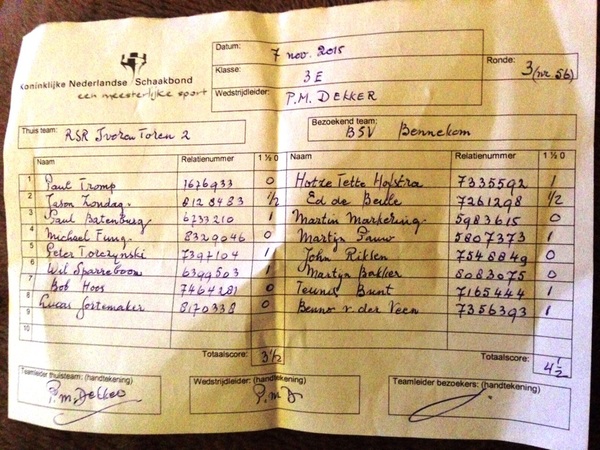 Koninklijke Nederlandse Schaakbond
een meesterlijke sport
Datum: 7 nov. 2015
Klasse: 3E
Wedstrijdleider: P.M. DEKKER
Ronde: 3 (nr. 56)
Thuis team: RSR Ivoren Toren 2
Bezoekend team: BSV Bennekom
Naam Relatienummer 1 ½ 0 Naam Relatienummer 1 ½ 0
1 Paul Tromp 7676933 0 Hotze Tette Hofstra 7335592 1
2 Jason Zondag 8128483 1/2 Ed de Beule 7261298 1/2
3 Paul Batenburg 6733210 1 Martin Markering 5983615 0
4 Michael Fung 8329046 0 Martijn Pauw 5807373 1
5 Peter Tolezynski 7397104 1 John Riksen 7548849 0
6 Wil Sparreboom 6399503 1 Martyn Bakker 8083075 0
7 Bob Hoos 7464281 0 Teunis Bunt 7165444 1
8 Lucas Fortemaker 8170338 0 Benno v.der Veen 7356393 1
9
10
Totaalscore: 3 1/2 Totaalscore: 4 1/2
Teamleider thuisteam: (handtekening) Wedstrijdleider: (handtekening) Teamleider bezoekers: (handtekening)
P.M. Dekker P.M.D